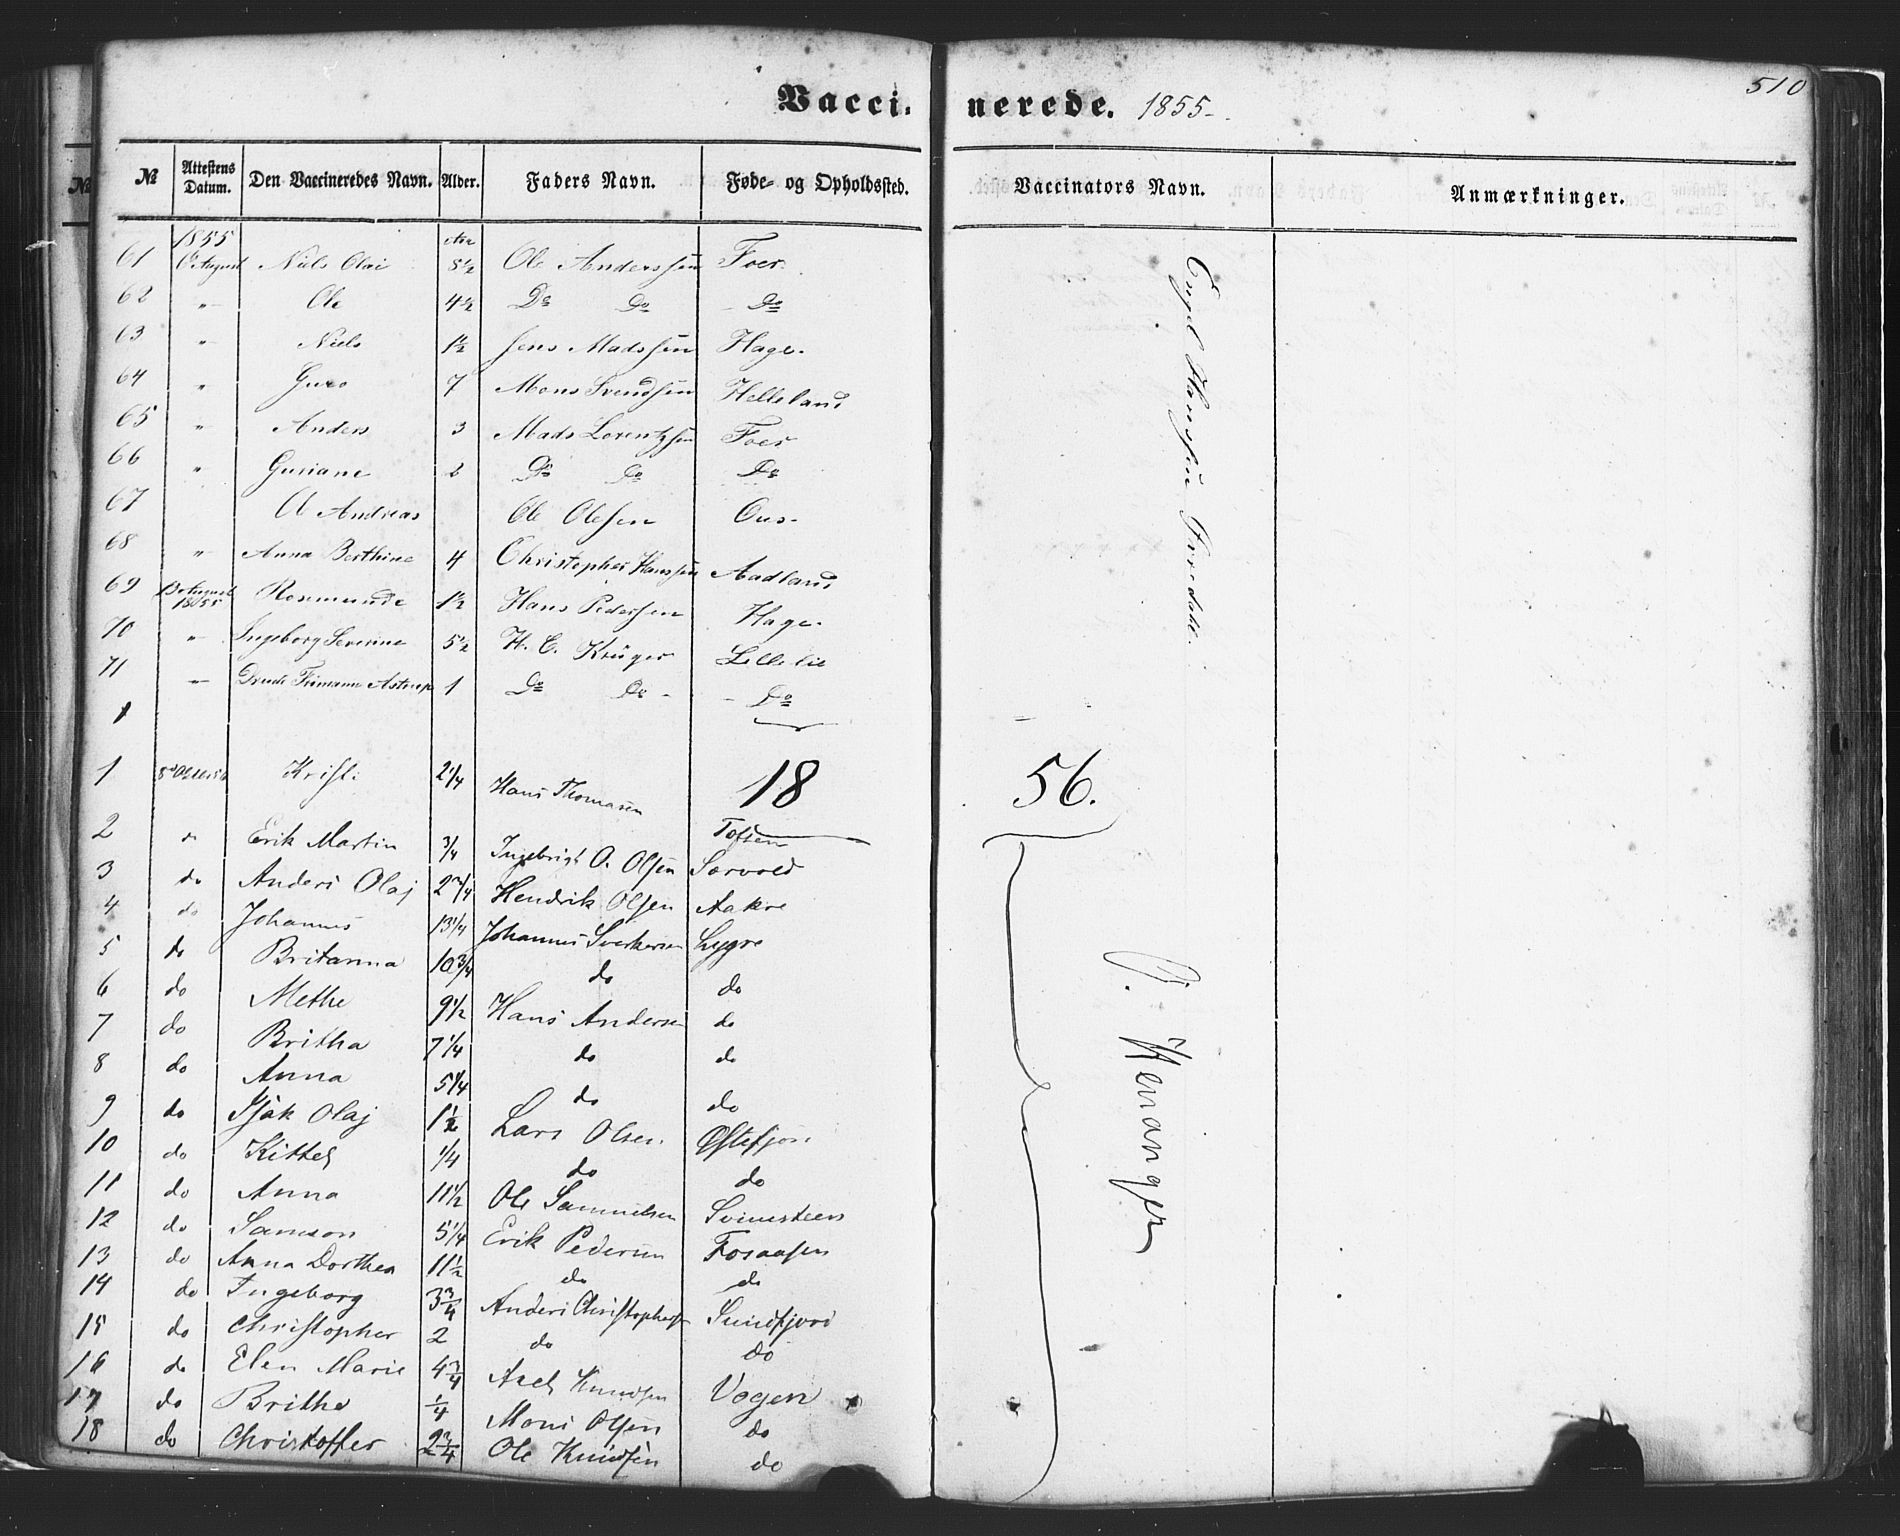 510
Vacci- nerede. 1855-
№ Attestens Datum. Den Vaccineredes Navn. Alder. Faders Navn. Føde- og Opholdssted. Vaccinators Navn. Anmærkninger.
1855
61 August Niels Olai 8½ Ole Anderssen Foer.
62 " Ole 4½ Do Do Do
63 " Niels 1½ Jens Madssen Hage.
64 " Guro 7 Mons Svendsen Helleland
65 " Anders 3 Mads Lorentzsen Foer
66 " Guriane 2 Do Do Do
67 Ol Andreas Ole Olesen Ous.
68 " Anna Berthine 4 Christopher Hanssen Aadland
69 13 August 1855 Rosmunde 1½ Hans Pedersen Hage.
70 " Ingeborg Severine 5½ H. C. Krüger Lillelie
71 " Drude Frimann Astrup 1 Do Do Do
1
18 56.
1 Kristi 2¼ Hans Thomasen Toften
2 do Erik Martin ¾ Ingebrigt O. Olsen Sørvold
3 do Anders Olaj 2¾ Hendrik Olsen Aakre
4 do Johannes 13¼ Johannes Sverkersen Lygre
5 do Britanna 10¾ do do
6 do Methe 9½ Hans Andersen do
7 do Britha 7¼ do do
8 do Anna 5¼ do do
9 do Isak Olaj 1½ Lars Olsen Østefjon
10 do Kittel ¼ do do
11 do Anna 11½ Ole Samuelsen Svinesteen
12 do Samson 5¼ Erik Pedersen Fosaasen
13 do Anna Dorthea 11½ do do
14 do Ingeborg 3¾ Anders Christophers Sundfjord
15 do Christopher 2 do do
16 do Elen Marie 4¾ Axel Knudsen Vogen
17 do Brithe ¼ Mons Olsen do
18 do Christoffer 2¾ Ole Knudsen do
Engel Hanssen
O. Henanger